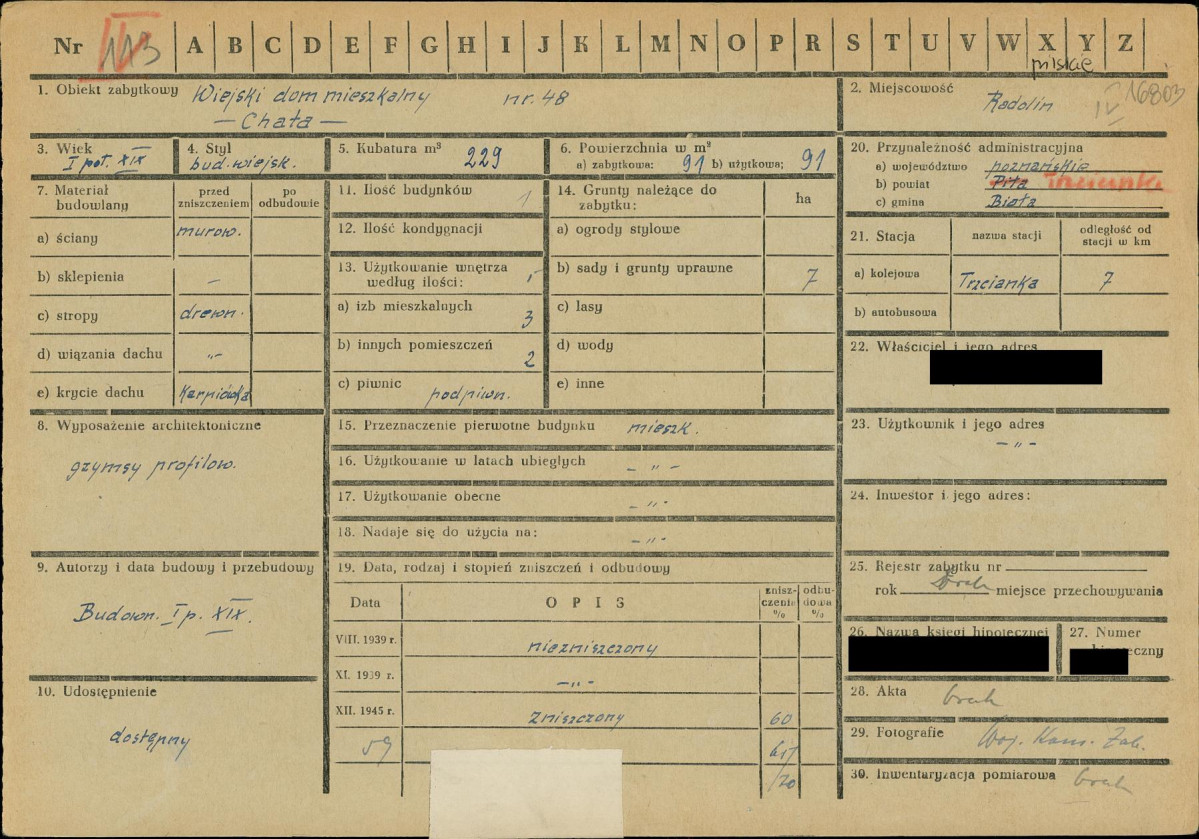 Nr 113 A B C D E F G H I J K L M N O P R S T U V W X Y Z
pilskie
1. Obiekt zabytkowy Wiejski dom mieszkalny nr. 48
— Chata —
2. Miejscowość Radolin
IV 16803
3. Wiek I poł. XIX
4. Styl bud. wiejsk.
5. Kubatura m³ 229
6. Powierzchnia w m²
a) zabytkowa: 91 b) użytkowa: 91
7. Materiał budowlany
przed zniszczeniem
po odbudowie
a) ściany murow.
b) sklepienia —
c) stropy drewn.
d) wiązania dachu -„-
e) krycie dachu Karpiówka
8. Wyposażenie architektoniczne
gzymsy profilow.
9. Autorzy i data budowy i przebudowy
Budown. I p. XIX.
10. Udostępnienie
dostępny
11. Ilość budynków 1
12. Ilość kondygnacji
13. Użytkowanie wnętrza
według ilości:
a) izb mieszkalnych 3
b) innych pomieszczeń 2
c) piwnic podpiwn.
14. Grunty należące do
zabytku:
ha
a) ogrody stylowe
b) sady i grunty uprawne 7
c) lasy
d) wody
e) inne
15. Przeznaczenie pierwotne budynku mieszk.
16. Użytkowanie w latach ubiegłych - „ -
17. Użytkowanie obecne - „ -
18. Nadaje się do użycia na: - „ -
19. Data, rodzaj i stopień zniszczeń i odbudowy
Data
OPIS
zniszczenie %
odbudowa %
VIII. 1939 r. niezniszczony
XI. 1939 r. -„-
XII. 1945 r. Zniszczony 60
59
20. Przynależność administracyjna
a) województwo poznańskie
b) powiat Piła Trzcianka
c) gmina Biała
21. Stacja
nazwa stacji
odległość od
stacji w km
a) kolejowa Trzcianka 7
b) autobusowa
22. Właściciel i jego adres
23. Użytkownik i jego adres
- „ -
24. Inwestor i jego adres:
25. Rejestr zabytku nr
rok brak miejsce przechowywania
26. Nazwa księgi hipotecznej
27. Numer
28. Akta brak
29. Fotografie Woj. Kons. Zab.
30. Inwentaryzacja pomiarowa brak